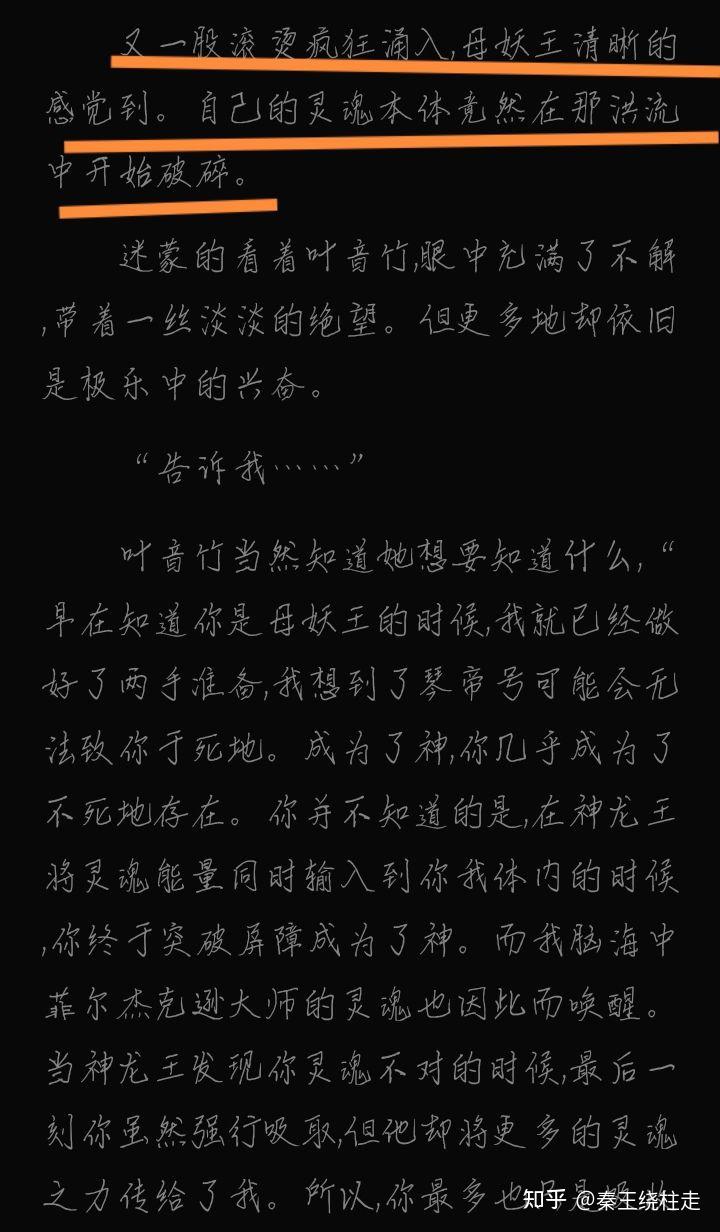 又一股滚烫疯狂涌入,母妖王清晰的
感觉到。自己的灵魂本体竟然在那洪流
中开始破碎。
迷蒙的看着叶音竹,眼中充满了不解
,带着一丝淡淡的绝望。但更多地却依旧
是极乐中的兴奋。
“告诉我……”
叶音竹当然知道她想要知道什么,“
早在知道你是母妖王的时候,我就已经做
好了两手准备,我想到了琴帝号可能会无
法致你于死地。成为了神,你几乎成为了
不死地存在。你并不知道的是,在神龙王
将灵魂能量同时输入到你我体内的时候
,你终于突破屏障成为了神。而我脑海中
菲尔杰克逊大师的灵魂也因此而唤醒。
当神龙王发现你灵魂不对的时候,最后一
刻你虽然强行吸取,但他却将更多的灵魂
之力传给了我。所以,你最多也
知乎 @秦王绕柱走